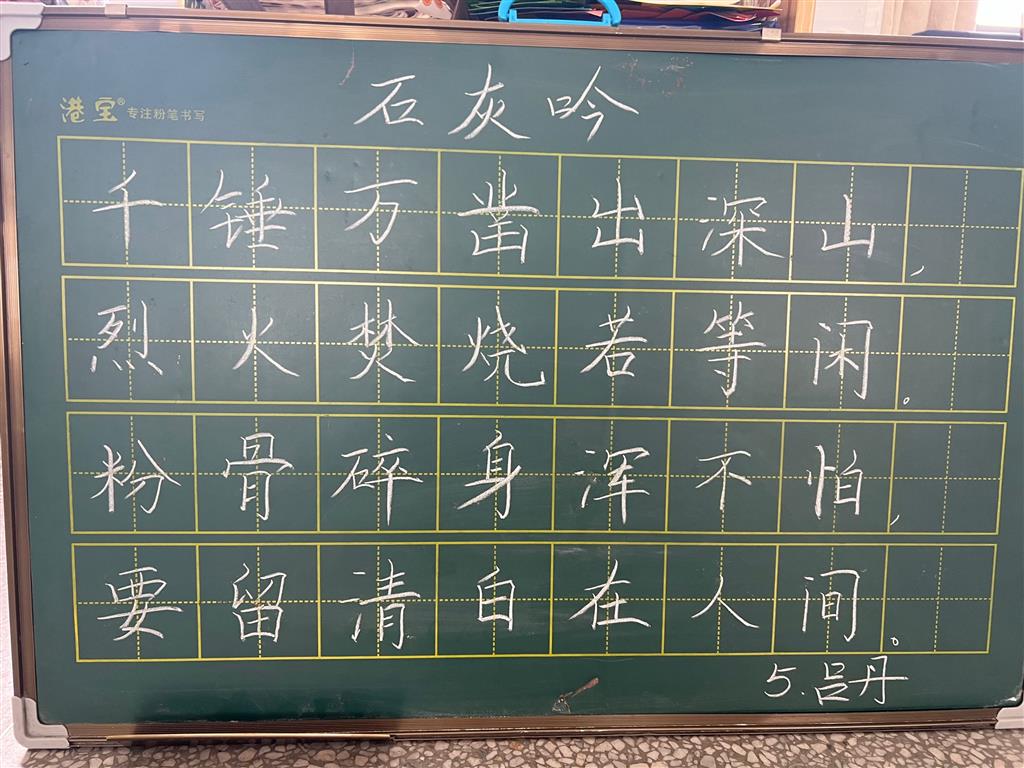 港宝® 专注粉笔书写
石灰吟
千锤万凿出深山，
烈火焚烧若等闲。
粉骨碎身浑不怕，
要留清白在人间。
5.吕丹